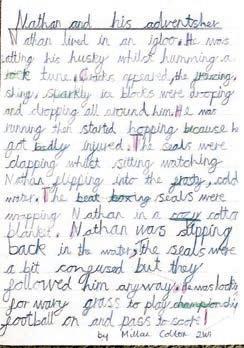 Nathan and his adventsher
Nathan lived in an igloo. He was
sitting his husky whilst humming a
rock tune. Cracks appeared, the
shing, sparkly ice blocks were droping
and dropping all around him. He was
running then started hopping because he
got badly injured. The seals were
clapping whilst sitting watching
Nathan flipping into the cold
water. The beat boxing seals were
wrapping Nathan in a cozy cotton
blanket. Nathan was slipping
back in the water, The seals were
a bit confused but they
followed him anyway. He was looking
for wavy grass to play championship
football on and pass to
by Millar 2W